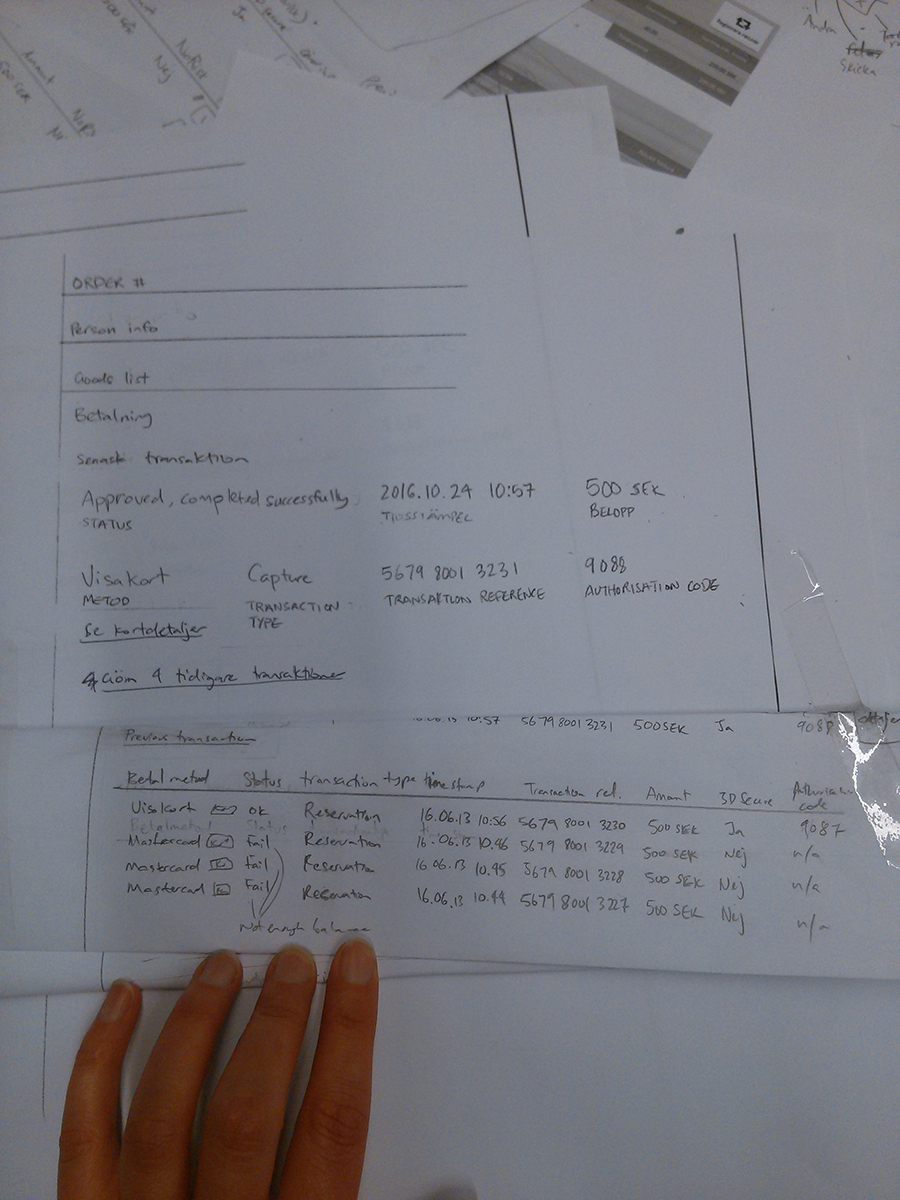 ORDER #
Person info
Goods list
Betalning
Senast transaktion
Approved, completed successfully 2016.10.24 10:57 500 SEK
STATUS TIDSSTÄMPEL BELOPP
Visakort Capture 5679 8001 3231 9088
METOD TRANSACTION TYPE TRANSAKTION REFERENCE AUTHORISATION CODE
Se kortdetaljer
Göm 4 tidigare transaktioner
10:57 5679 8001 3231 500 SEK Ja 9088
Previous transaction
Betalmetod Status transaction type timestamp Transaction ref. Amount 3D Secure Authorisation code
Visakort OK Reservation 16.06.13 10:56 5679 8001 3230 500 SEK Ja 9087
Mastercard Fail Reservation 16.06.13 10.46 5679 8001 3229 500 SEK Nej n/a
Mastercard Fail Reservation 16.06.13 10.45 5679 8001 3228 500 SEK Nej n/a
Mastercard Fail Reservation 16.06.13 10.44 5679 8001 3227 500 SEK Nej n/a
Not enough balance